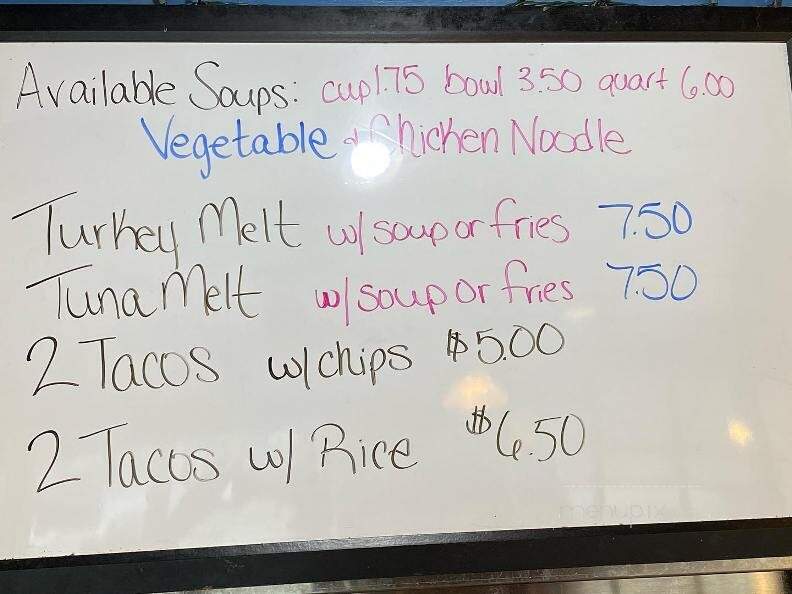 Available Soups: cup 1.75 bowl 3.50 quart 6.00
Vegetable & Chicken Noodle
Turkey Melt w/ soup or fries 7.50
Tuna Melt w/ soup or fries 7.50
2 Tacos w/ chips $5.00
2 Tacos w/ Rice $6.50